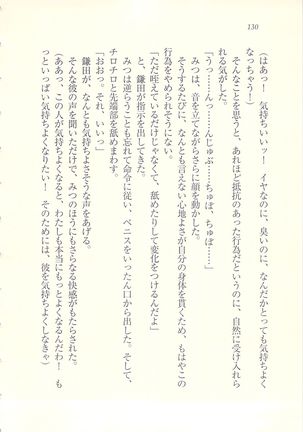 130
(はあっ!　気持ちいいッ!　イヤなのに、臭いのに、なんだかとっても気持ちよく
なっちゃう!)
そんなことを思うと、あれほど抵抗のあった行為だというのに、自然に受け入れら
れる気がした。
「うっ……んっ……んじゅぷ……ちゅぽ、ちゅぽ……」
みつは、音を立てながらさらに顔を動かした。
そうするたびに、なんとも言えない心地よさが自分の身体を貫くため、もはやこの
行為をやめられそうにない。
「ただ咥えているだけじゃなくて、舐めたりして変化をつけるんだよ」
と、鎌田が指示を出してきた。
みつは逆らうことも忘れて命令に従い、ペニスをいったん口から出した。そして、
チロチロと先端部を舐めまわす。
「おおっ。それ、いいっ」
鎌田が、なんとも気持ちよさそうな声をあげる。
そんな彼の声を聞いただけで、みつのほうにもさらなる快感がもたらされた。
(ああっ、この人が気持ちよくなると、わたしも本当にもっとよくなるんだわ!　も
っといっぱい気持ちよくなりたい!　そのためには、彼を気持ちよくしなきゃ)